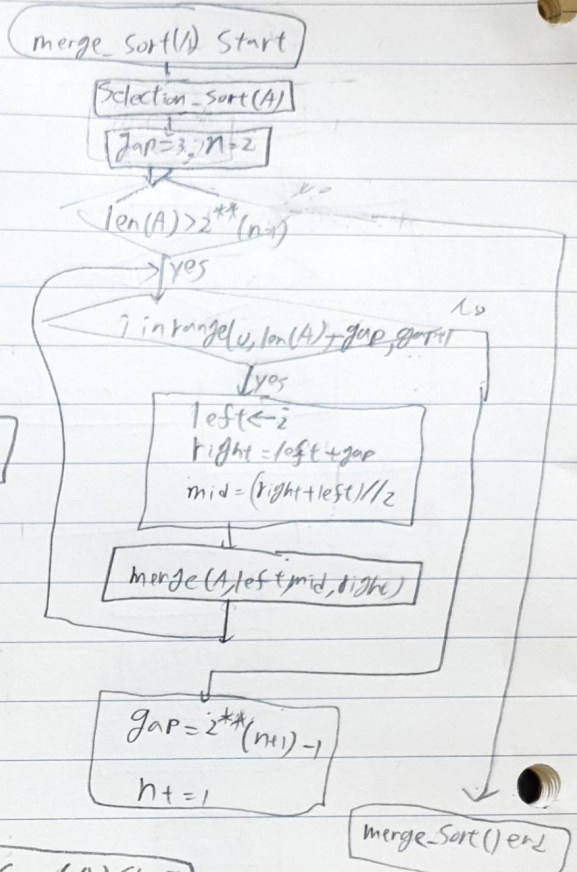 merge_sort(A) Start
Selection_Sort(A)
gap=3, n=2
no
len(A)>2**(n-1)
yes
no
i in range(0, len(A)+gap, gap+1
yes
left←i
right=left+gap
mid=(right+left)//2
merge(A,left,mid,right)
gap=2**(n+1)-1
n+=1
merge_Sort() end